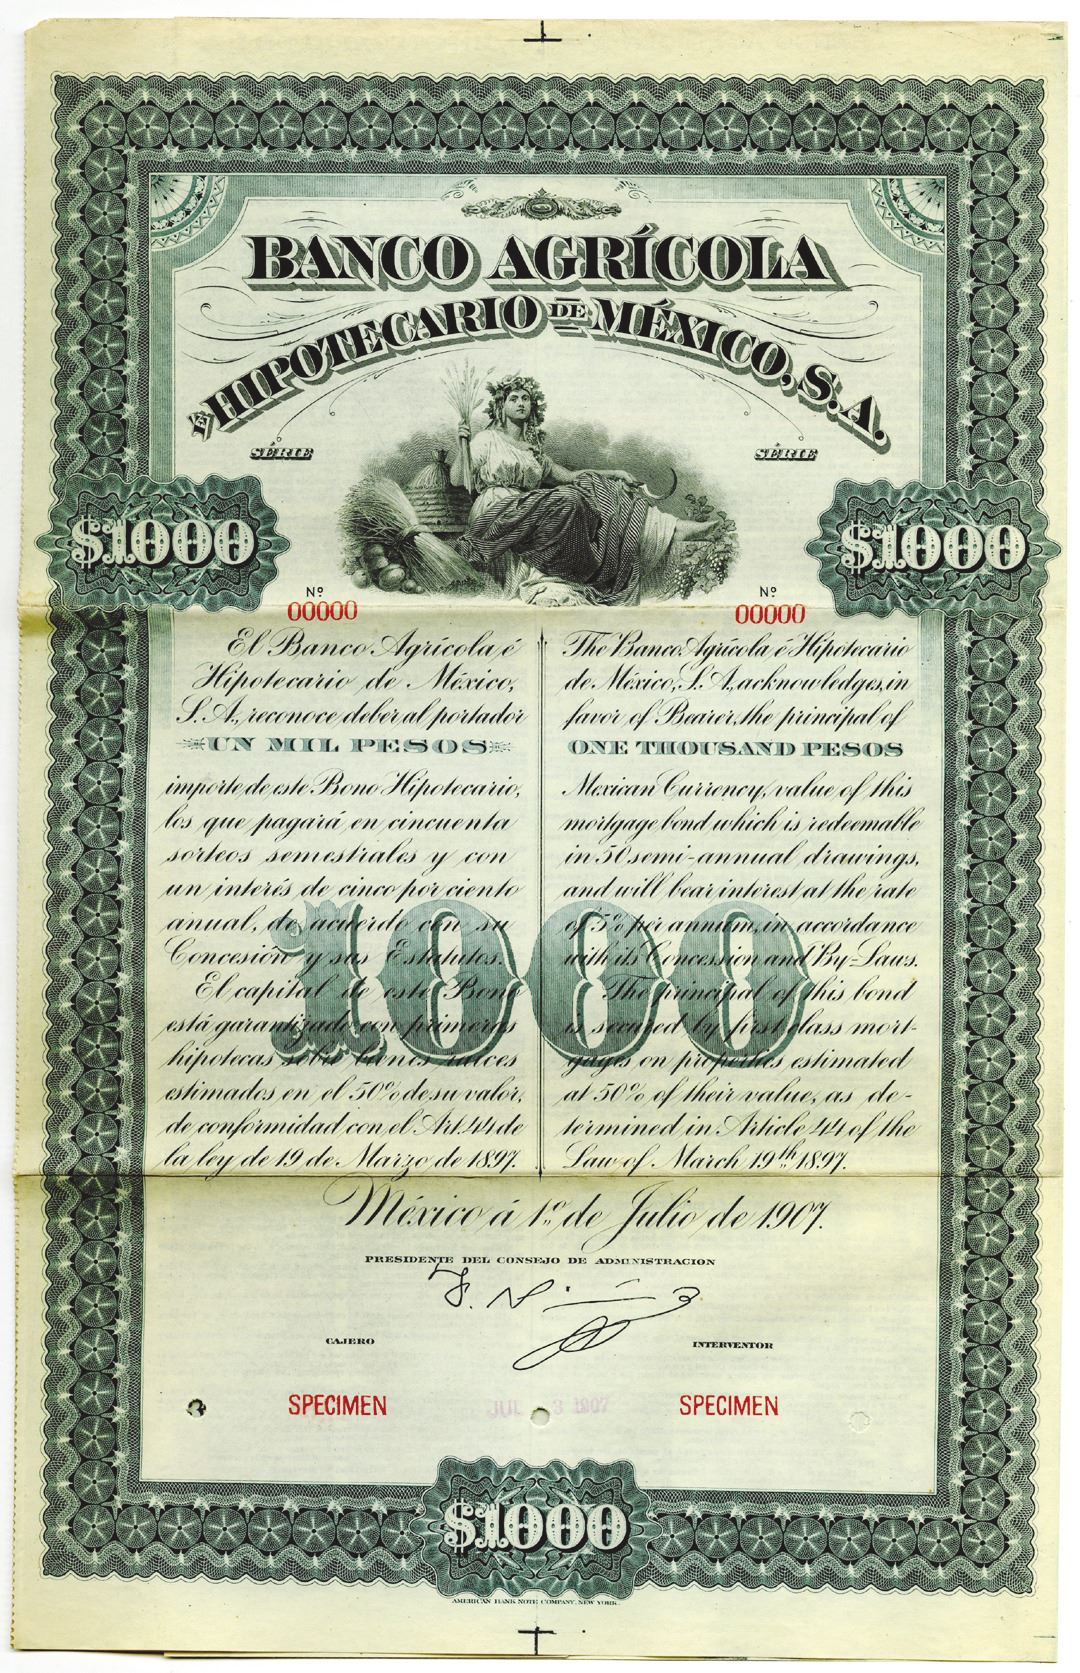 BANCO AGRÍCOLA
É HIPOTECARIO DE MÉXICO, S.A.
SÉRIE
SÉRIE
$1000
$1000
Nº
00000
Nº
00000
El Banco Agrícola é
Hipotecario de México,
S.A., reconoce deber al portador
UN MIL PESOS
importe de este Bono Hipotecario,
los que pagará en cincuenta
sorteos semestrales y con
un interés de cinco por ciento
anual, de acuerdo con su
Concesión y sus Estatutos.
El capital de este Bono
está garantizado con primeras
hipotecas sobre bienes raíces
estimados en el 50% de su valor,
de conformidad con el Art. 44 de
la ley de 19 de Marzo de 1897.
The Banco Agrícola é Hipotecario
de México, S.A., acknowledges, in
favor of Bearer, the principal of
ONE THOUSAND PESOS
Mexican Currency, value of this
mortgage bond which is redeemable
in 50 semi-annual drawings,
and will bear interest at the rate
of 5% per annum, in accordance
with its Concession and By-Laws.
The principal of this bond
is secured by first class mort-
gages on properties estimated
at 50% of their value, as de-
termined in Article 44 of the
Law of March 19th 1897.
1000
México, á 1º de Julio de 1907.
PRESIDENTE DEL CONSEJO DE ADMINISTRACION
CAJERO
INTERVENTOR
SPECIMEN
JUL 3 1907
SPECIMEN
$1000
AMERICAN BANK NOTE COMPANY, NEW YORK.